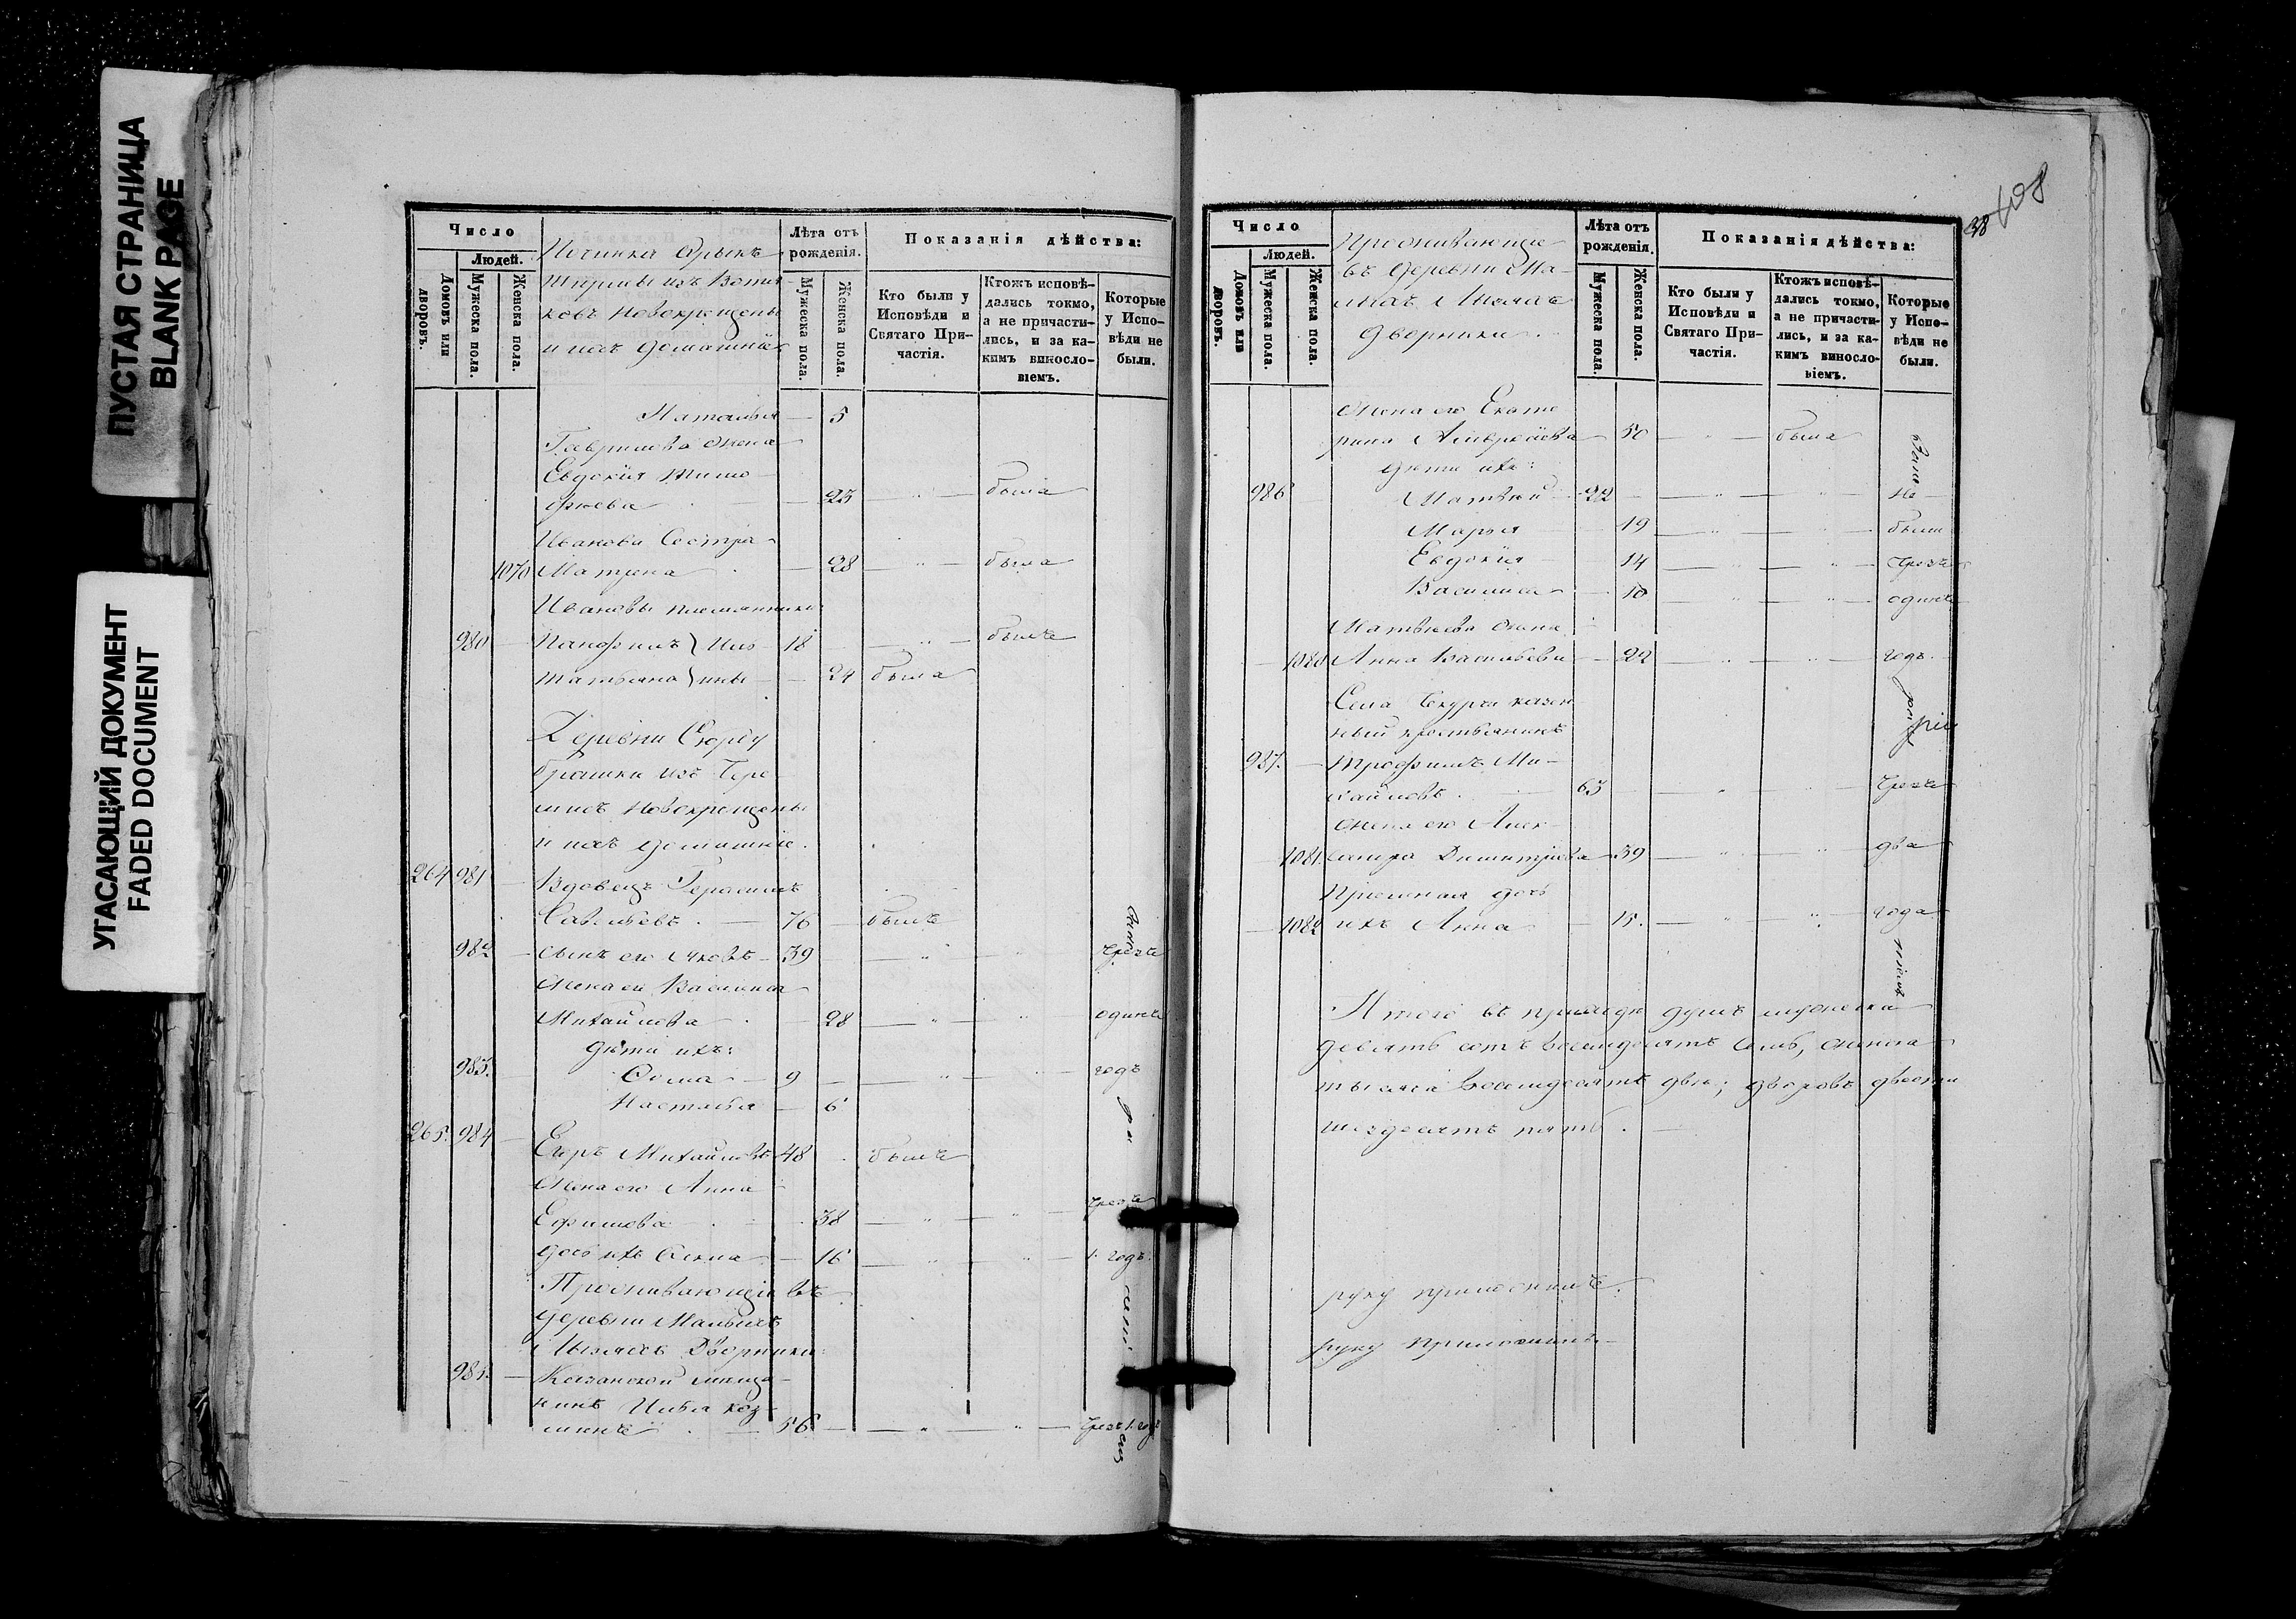 ПУСТАЯ СТРАНИЦА
BLANK PAGE
УГАСАЮЩИЙ ДОКУМЕНТ
FADED DOCUMENT
Число
Людей.
Домовъ или дворовъ.
Мужеска пола.
Женска пола.
Починка
изъ Вотя
ковъ Новокрещены
и ихъ домашніе
Лѣта отъ рожденія.
Мужеска пола.
Женска пола.
Показанія дѣйства:
Кто были у Исповѣди и Святаго При-частія.
Ктожъ исповѣ-дались токмо, а не причасти-лись, и за ка-кимъ винословіемъ.
Которые у Испо-вѣди не были.
Наталья — 5
Гаврилова жена
Евдокія Тимо
фѣева — 23 — " — была
Иванова Сестра
1070 Матрена — 28 — " — была
Ивановы племянники
980 — Панфилъ 18 — " — былъ
Татьяна — 24 была
Деревни
изъ Чере
мисъ Новокрещены
и ихъ домашніе.
264 981 — Вдовецъ Герасимъ
Савельевъ . — 76 — былъ
982 — сынъ его Яковъ — 39 — " — чрезъ
жена ей Василиса
Михайлова — 28 — " — одинъ
дѣти ихъ:
983. Ѳома — 9 — " — годъ
Настасья — 6
265. 984 —
Егоръ Михайловъ 48 . былъ
жена его Анна
Ефимова — 38 — " — " — чрезъ
дочь ихъ — 16 — " — " — 1. годъ.
Проживающіе въ
деревни Малыхъ
Дворники
985. — Казанской мѣща-
нинъ Илья Коз-
минъ . — 56 — " — " — чрезъ 1. годъ
38
108
Число
Людей.
Домовъ или дворовъ.
Мужеска пола.
Женска пола.
Проживающіе
въ деревни Ма-
лыхъ
дворники.
Лѣта отъ рожденія.
Мужеска пола.
Женска пола.
Показанія дѣйства:
Кто были у Исповѣди и Святаго При-частія.
Ктожъ исповѣ-дались токмо, а не причасти-лись, и за ка-кимъ винословіемъ.
Которые у Испо-вѣди не были.
Жена его Екате
рина — 50 — " — была
дѣти ихъ:
986 — Матвѣй — 22 — " — " — не
Марья — 19 — " — были
Евдокія — 14 — " — чрезъ
Василиса — 10 — " — одинъ
Матвѣева жена
— 1080 Анна Васильева — 22 — " — " — годъ.
Села Чекурчи казен
ный крестьянинъ
987. — Трофимъ Ми-
хайловъ . — 63 — " — чрезъ
жена его Алек-
— 1081. сандра Димитріева — 39 — " — " — два
Пріемная дочь
— 1082 ихъ Анна — 15. — " — " — года
Итого въ приходѣ душъ мужеска
девять сотъ восемдесятъ семь, женска
тысяча восемдесятъ двѣ; дворовъ двѣсти
шездесятъ пять. —
руку приложилъ.
руку приложилъ —